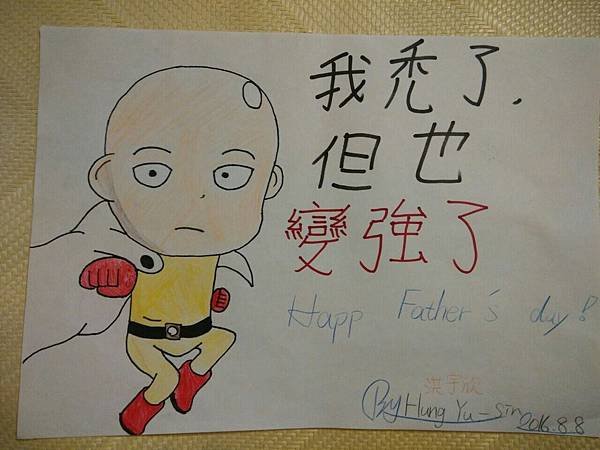 我禿了.
但也
變強了
Happ Father's day!
洪宇欣
By Hung Yu-Sin
2016.8.8